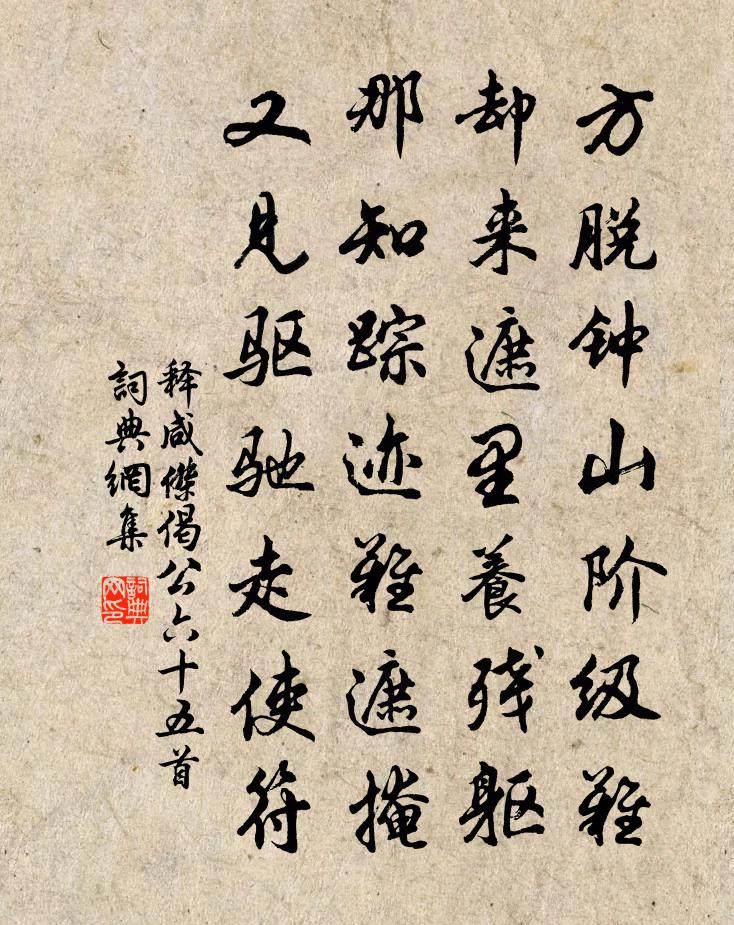 方脱钟山阶级难
却来遮里养残躯
那知踪迹难遮掩
又见驱驰走使符
释咸傑偈公六十五首
詞典網集
詞典網印